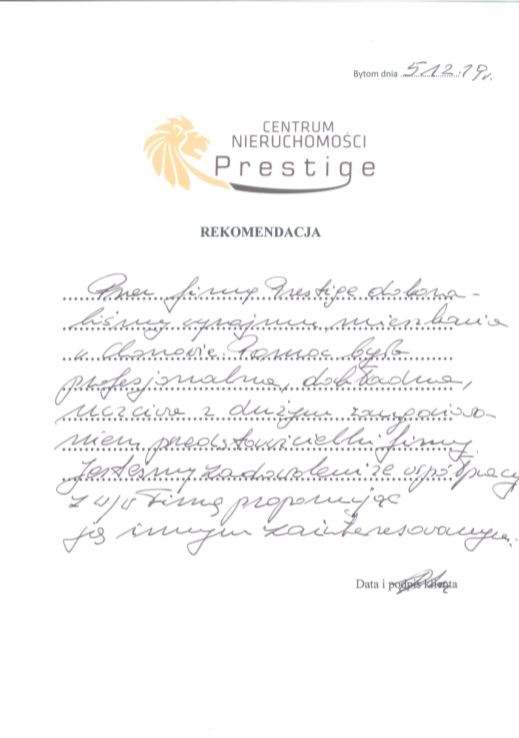 Bytom dnia 5.12.19r.
CENTRUM
NIERUCHOMOŚCI
Prestige
REKOMENDACJA
Przez firmę Prestige dokona-
liśmy wynajmu mieszkania
w Chorzowie. Pomoc była
profesjonalna, dokładna,
uczciwa z dużym zaangażowa-
niem przedstawicielki firmy.
Jesteśmy zadowoleni ze współpracy
z w/w Firmą proponując
ją innym zainteresowanym.
Data i podpis klienta